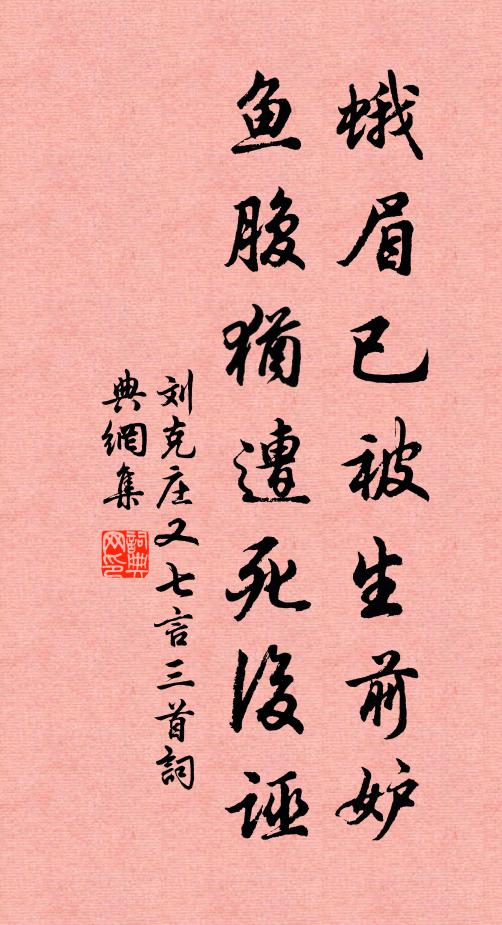 蛾眉已被生前妒
鱼腹犹遭死後诬
刘克庄又七言三首词
典網集
詞典
网印